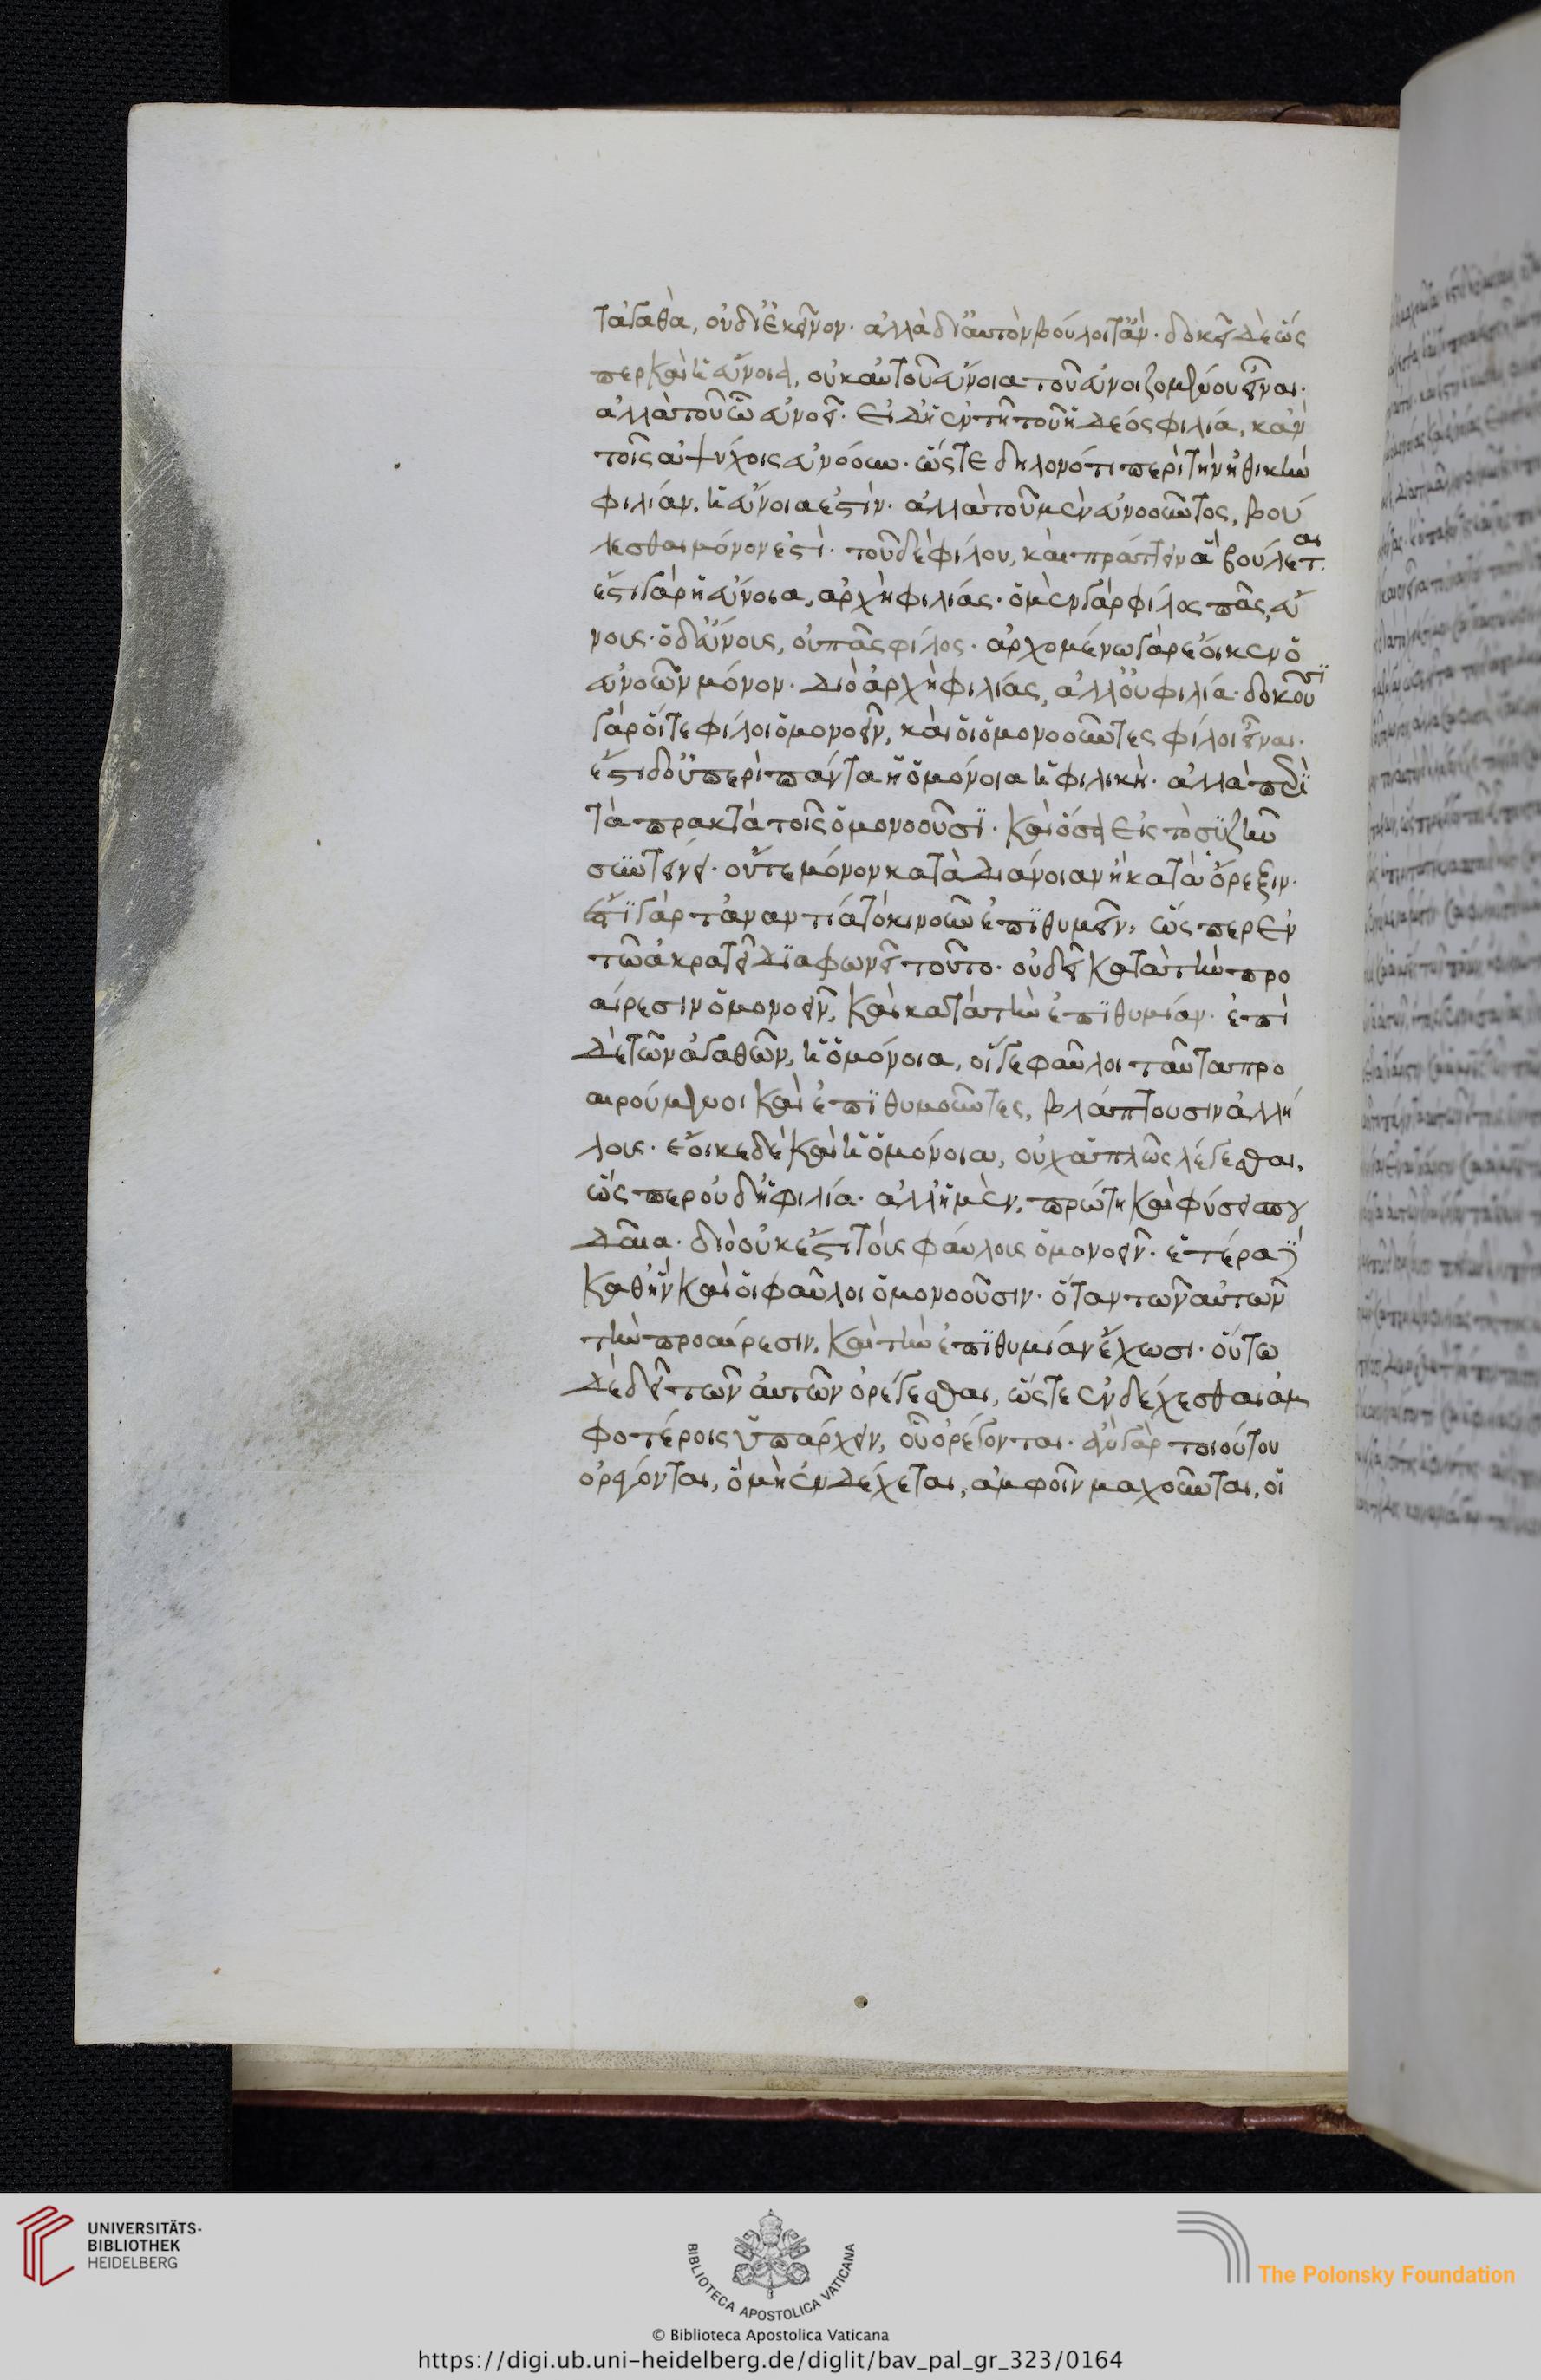 τἀγαθὰ, οὐ δι' ἐκεῖνον. ἀλλὰ δι' αὐτὸν βούλοιτ' ἄν. δοκεῖ δὲ ὥς
περ καὶ ἡ εὔνοια, οὐκ αὐτοῦ εὔνοια τοῦ εὐνοιζομένου εἶναι.
ἀλλὰ τοῦ ᾧ εὐνοεῖ. εἰ δὴ ἐν τῇ τοῦ ἡδέος φιλία, κἀν
τοῖς ἀψύχοις εὐνόουν. ὥστε δηλονότι περὶ τὴν ἠθικὴν
φιλίαν, ἡ εὔνοια ἐστὶν. ἀλλὰ τοῦ μὲν εὐνοοῦντος, βού
λεσθαι μόνον ἐστὶ. τοῦ δὲ φίλου, καὶ πράττειν ἃ βούλεται.
ἔστι γὰρ ἡ εὔνοια, ἀρχὴ φιλίας. ὁ μὲν γὰρ φίλος πᾶς, εὔ
νους. ὁ δ' εὔνους, οὐ πᾶς φίλος. ἀρχομένω γὰρ ἔοικεν ὁ
εὐνοῶν μόνον. διὸ ἀρχὴ φιλίας, ἀλλ' οὐ φιλία. δοκοῦσϊ
γὰρ οἵ τε φίλοι ὁμονοεῖν, καὶ οἱ ὁμονοοῦντες φίλοι εἶναι.
ἔστι δ' οὐ περὶ πάντα ἡ ὁμόνοια ἡ φιλικὴ. ἀλλὰ περὶ
τὰ πρακτὰ τοῖς ὁμονοοῦσϊ. καὶ ὅσα εἰς τὸ συζῆν
συντείνει. οὔτε μόνον κατὰ διάνοιαν ἢ κατὰ ὄρεξιν.
ἔστϊ γὰρ τἀναντία τὸ κινοῦν ἐπϊθυμεῖν, ὥς περ ἐν
τῶ ἀκρατεῖ δϊαφωνεῖ τοῦτο. οὐ δεῖ κατὰ τὴν προ
αίρεσιν ὁμονοεῖν, καὶ κατὰ τὴν ἐπϊθυμίαν. ἐπὶ
δὲ τῶν ἀγαθῶν, ἡ ὁμόνοια, οἵ γε φαῦλοι ταῦτα προ
αιρούμενοι καὶ ἐπϊθυμοῦντες, βλάπτουσιν ἀλλή
λους. ἔοικε δὲ καὶ ἡ ὁμόνοια, οὐχ ἁπλῶς λέγεσθαι,
ὥς περ οὐδ' ἡ φιλία. ἀλλ' ἡ μὲν, πρώτη καὶ φύσει σπου
δαία. διὸ οὐκ ἔστι τοῖς φαύλοις ὁμονοεῖν. ἑτέρα δὲ
καθ' ἣν καὶ οἱ φαῦλοι ὁμονοοῦσιν. ὅταν τῶν αὐτῶν
τὴν προαίρεσιν, καὶ τὴν ἐπϊθυμίαν ἔχωσι. οὕτω
δὲ δεῖ τῶν αὐτῶν ὀρέγεσθαι, ὥστε ἐνδέχεσθαι ἀμ
φοτέροις ὑπάρχειν, οὗ ὀρέγονται. ἂν γὰρ τοιούτου
ὀρέγονται, ὃ μὴ ἐνδέχεται, ἀμφοῖν μαχοῦνται, οἱ
UNIVERSITÄTS-
BIBLIOTHEK
HEIDELBERG
BIBLIOTECA APOSTOLICA VATICANA
The Polonsky Foundation
© Biblioteca Apostolica Vaticana
https://digi.ub.uni-heidelberg.de/diglit/bav_pal_gr_323/0164